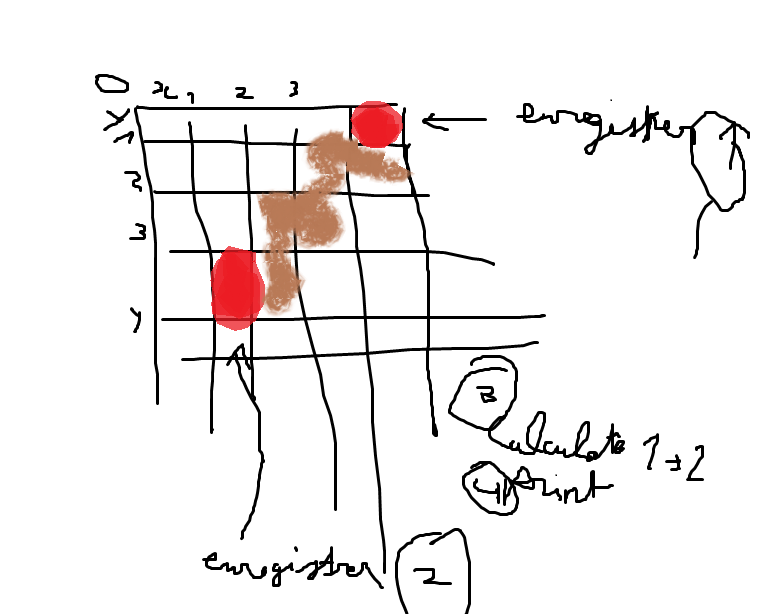 0 x 1 2 3
y
1
2
3
4
enregistrer 1
3
calculate 1→2
4 print
enregistrer 2